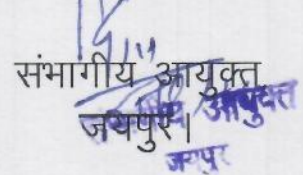 संभागीय आयुक्त
जयपुर।
आयुक्त
जयपुर